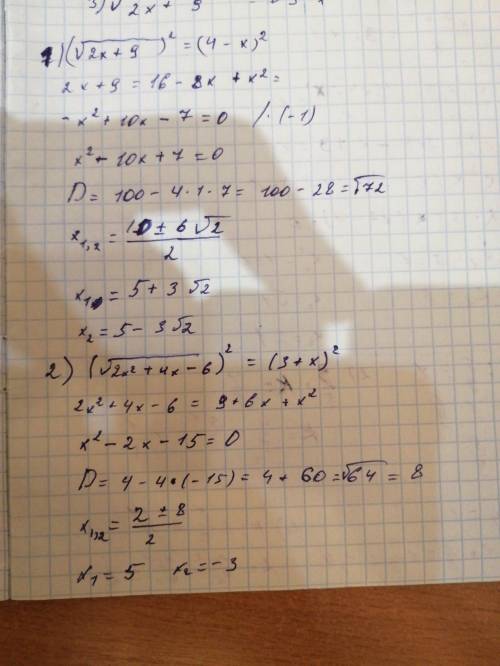 3) √2x + 9
1) (√2x+9)² = (4 - x)²
2x + 9 = 16 - 8x + x² =
- x² + 10x - 7 = 0 /·(-1)
x² - 10x + 7 = 0
D = 100 - 4·1·7 = 100 - 28 = √72
x₁,₂ = (10 ± 6√2)/2
x₁ = 5 + 3√2
x₂ = 5 - 3√2
2) (√2x² + 4x - 6)² = (3 + x)²
2x² + 4x - 6 = 9 + 6x + x²
x² - 2x - 15 = 0
D = 4 - 4·(-15) = 4 + 60 = √64 = 8
x₁,₂ = (2 ± 8)/2
x₁ = 5 x₂ = -3